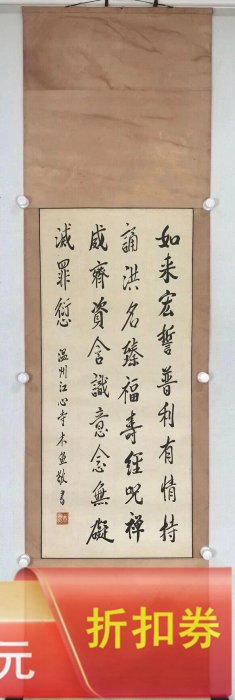 如来宏誓普利有情持
誦洪名臻福寿經咒禅
咸齊資含識意念無礙
滅罪愆
温州江心寺木魚敬書
元
折扣券